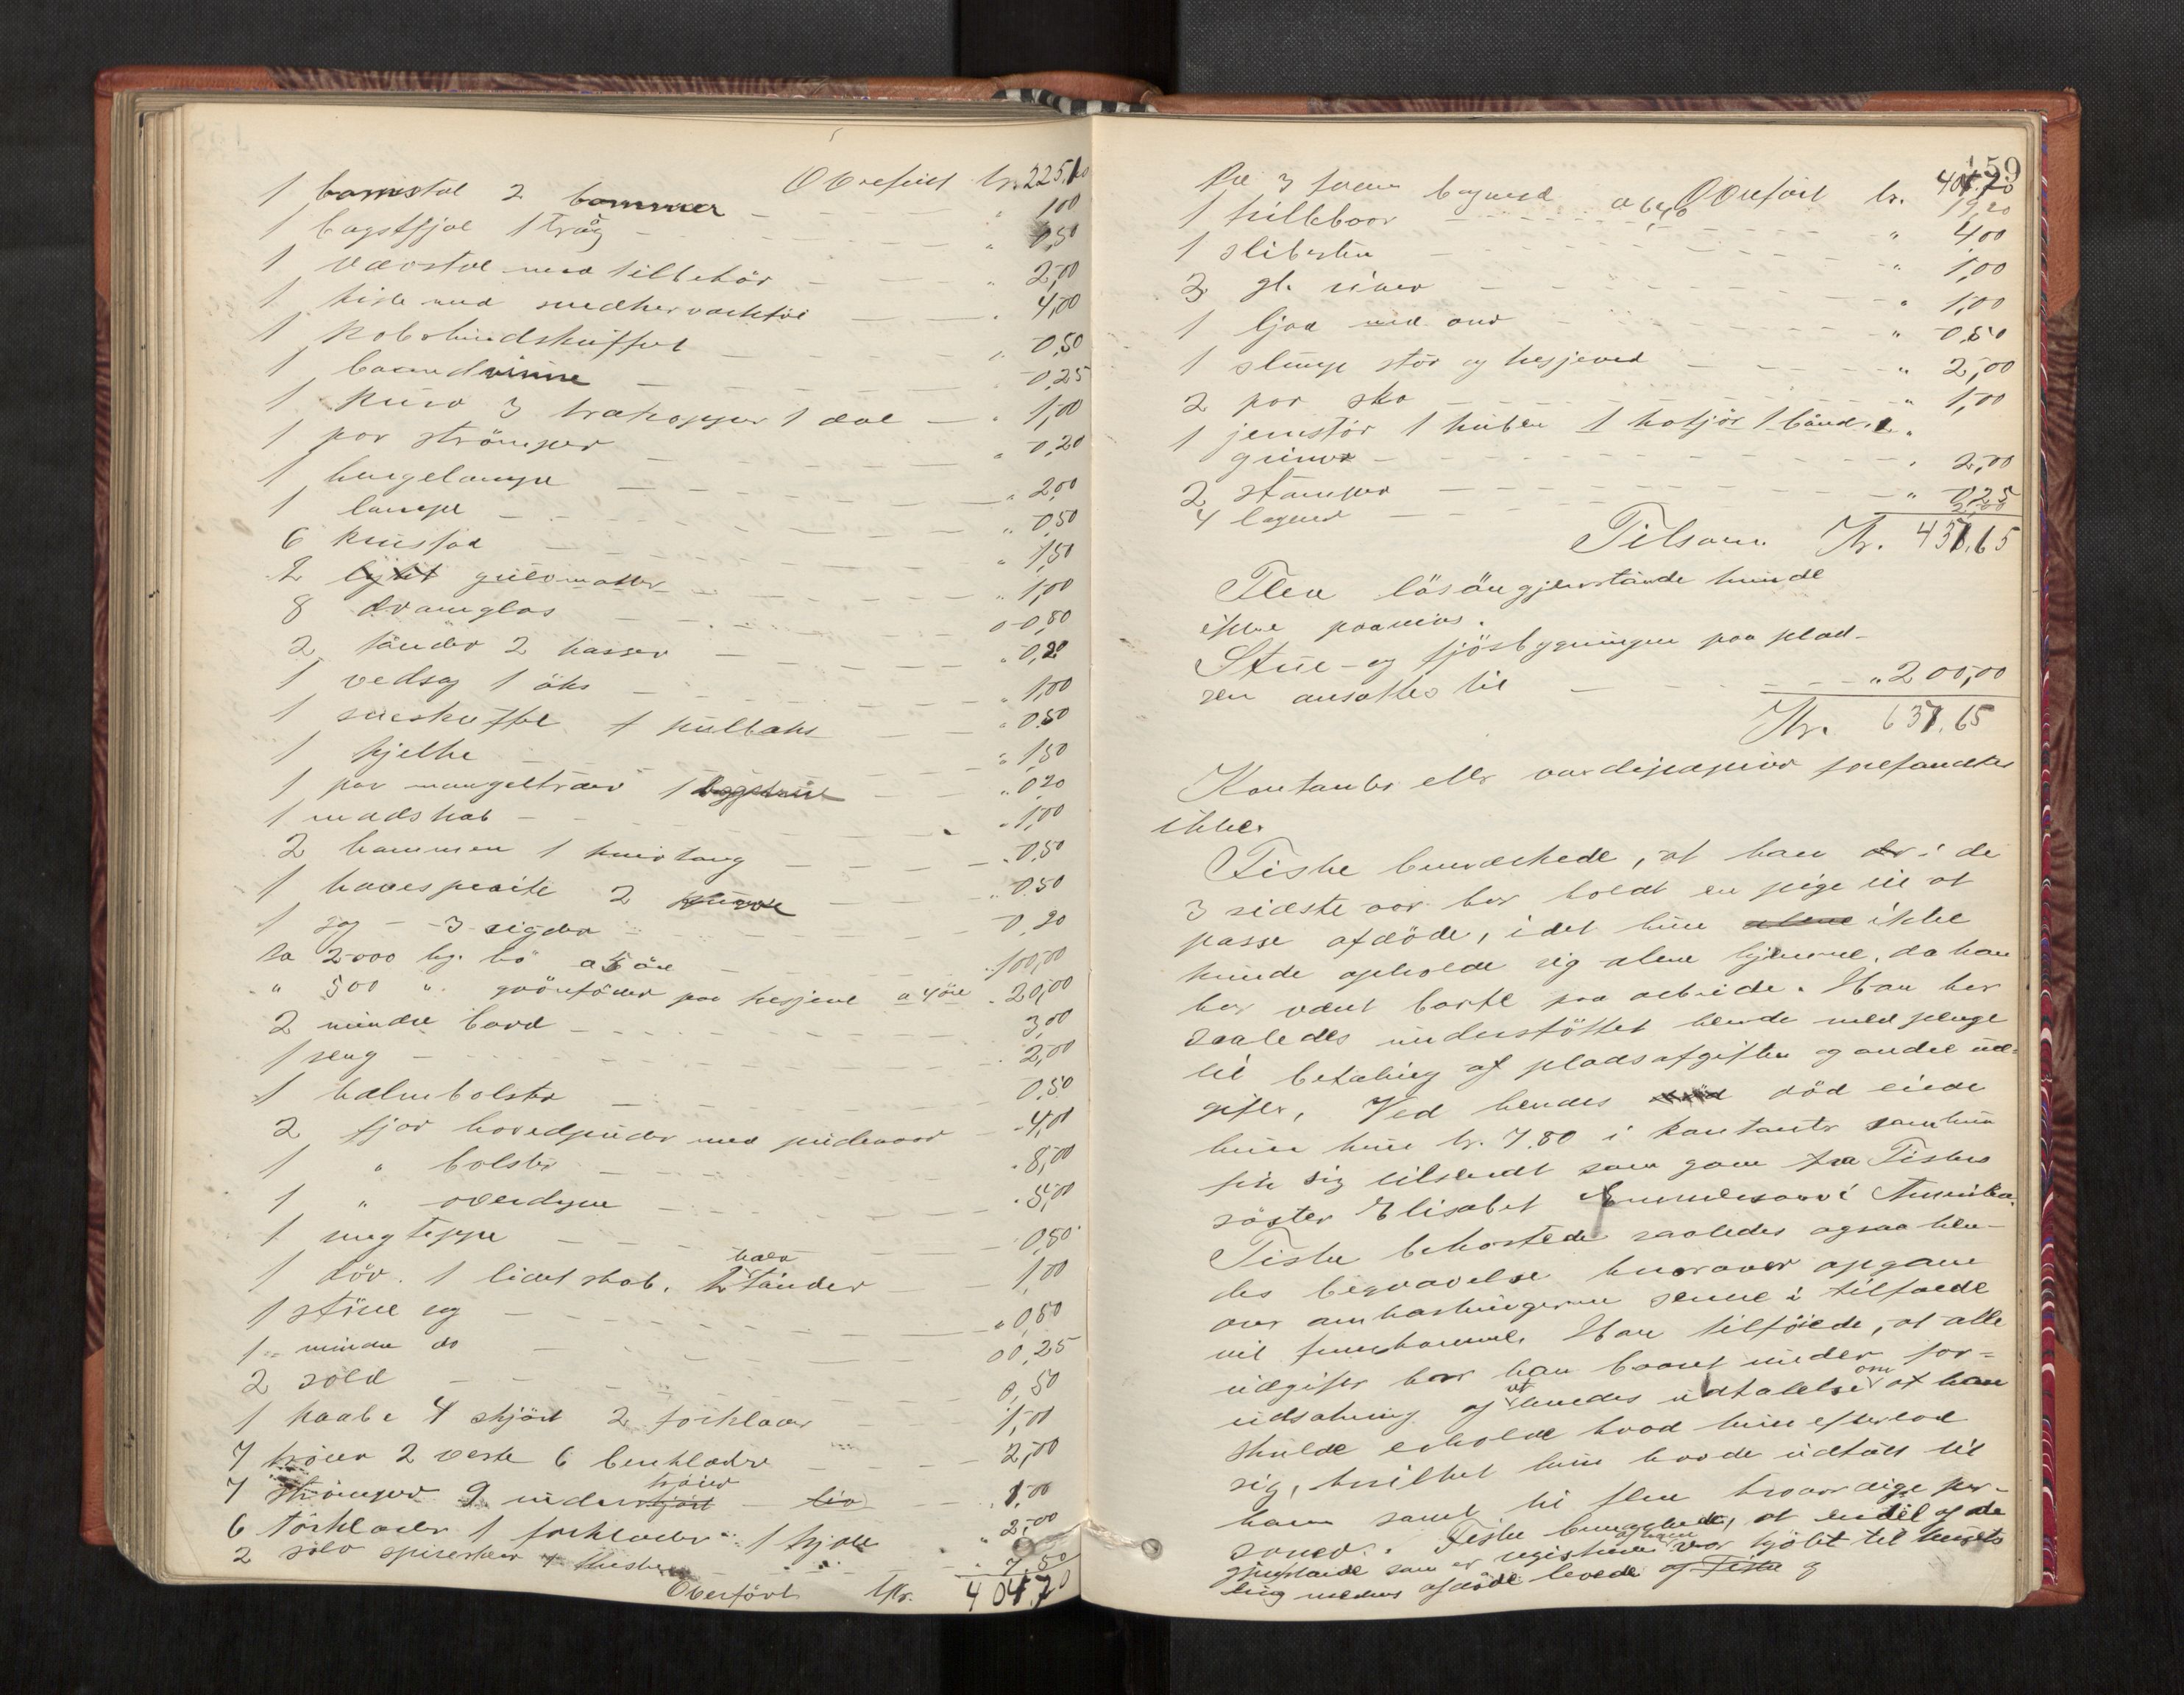 Overført kr. 225.10
1 bomstol 2 bommer - - - " 1,00
1 bagstfjøl 1 traug - - - " 0,50
1 vævstol med tilbehør - - - " 2,00
1 kiste med snedkerværktøi - - - " 4,00
1 kobolundskuffert - - - " 0,50
1 baandvinne - - - 0,25
1 kurv 3 trækopper 1 dal - " 1,00
1 par strømper - - - " 0,20
1 hengelampe - - - " 2,00
1 lampe - - - " 0,50
6 krusfad - - - " 1,50
2 gulvmatter - - - " 1,00
8 dramglas - - - 0,80
2 tønder 2 kasser - - - " 0,20
1 vedsag 1 øks - - - " 1,00
1 sneskuffel 1 kulbaks - - " 0,50
1 kjelke - - - " 1,50
1 par mangeltrær 1 - - " 0,20
1 madskab - - - " 1,00
2 hammere 1 knivtang - - - " 0,50
1 havesprøite 2 - - - " 0,50
1 sag - 3 sigder - - - 0,20
ca 2000 kg. hø a 5 øre - - - " 100,00
" 500 " grønfoder paa hesjene a 4 øre " 20,00
2 mindre bord - - - 3,00
1 seng - - - 2,00
1 halmbolster - - - 0,50
2 fjær hovedpuder med pudevaar - 4,00
1 " bolster - - - " 8,00
1 " overdyne - - - " 5,00
1 sengteppe - - - 0,50
1 dør. 1 lidet skab. 2 halv tønder - 1,00
1 stue ur - - - " 0,50
1 - mindre do - - - 0,25
2 sold - - - 0,50
1 kaabe 4 skjørt 2 forklær 1,00
7 trøier 2 veste 6 benklæder - - - 2,00
7 strømper 9 undertrøier - - " 1,00
6 tørklæder 1 forklæder 1 kjole " 2,00
2 sølv spiseskeer - - - " 7,50
Overført Kr. 404.70
159
Overført kr. 404.70
Ca 3 favne bagved a 6,40 19,20
1 hillebor - - - " 4,00
1 slibesten - - - " 1,00
3 gl. river - - - " 1,00
1 ljaa med orv - - - " 0,50
1 slump stør og hesjeved - - - " 2,00
2 par sko - - - " 1,00
1 jernstør 1 kubbe 1 hakjør 1 baand 2 "
grimer - - - " 2,00
2 stamper - - - " 0,25
4 lagner - - -
Tilsam. Kr. 437.65
Flere løsøregjenstande kunde
ikke paavises.
Stue- og fjøsbygningen paa plad-
sen ansattes til - - - " 200,00
Kr. 637.65
Kontanter eller værdipapirer forefandtes
ikke.
Fiske bemærkede, at han i de
3 sidste aar har holdt en pige til at
passe afdøde, idet hun ikke
kunde opholde sig alene hjemme, da han
har været borte paa arbeide. Han har
saaledes understøttet hende med penge
til betaling af pladsafgiften og andre ud-
gifter. Ved hendes død eiede
hun kun kr. 7.80 i kontanter som hun
fik sig tilsendt som gave fra Fiskes
søster Elisabet i Amerika.
Fiske bekostede saaledes ogsaa hen-
des begravelse hvorover opgave
over omkostningerne senere i tilfælde
vil fremkomme. Han tilføiede, at alle
udgifter har han baaret under for-
udsætning af hendes udtalelse om at han
skulde erholde hvad hun efterlod
sig, hvilket hun havde udtalt til
ham samt til flere troværdige per-
soner. Fiske bemærkede, at endel af de
gjenstande som er registreret var kjøbt til husets
brug medens afdøde levede af Fiske